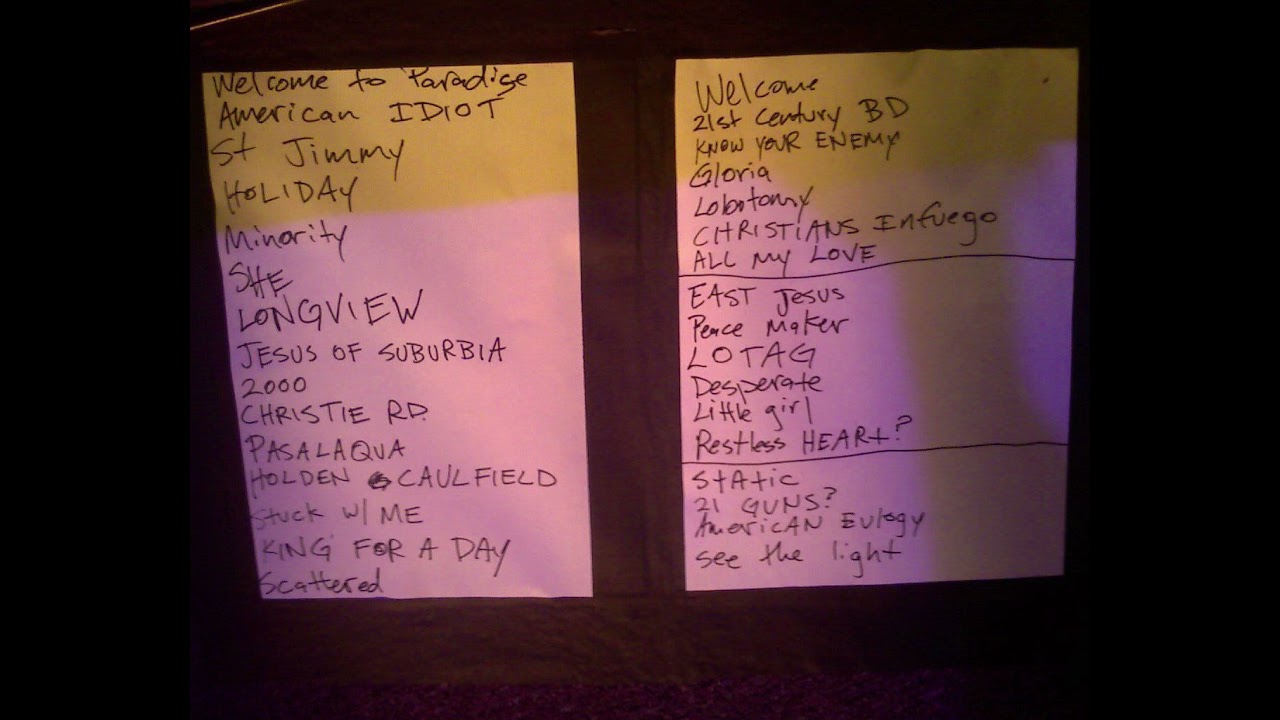 Welcome to Paradise
American IDIOT
St Jimmy
HOLIDAY
Minority
SHE
LONGVIEW
JESUS OF SUBURBIA
2000
CHRISTIE RD.
PASALAQUA
HOLDEN CAULFIELD
Stuck w/ ME
KING FOR A DAY
Scattered
Welcome
21st Century BD
KNOW YOUR ENEMY
Gloria
Lobotomy
CHRISTIANS Infuego
ALL My LOVE
EAST Jesus
Peace Maker
LOTAG
Desperate
Little girl
Restless HEARt?
StAtic
21 GUNS?
AmeriCAN Eulogy
see the light